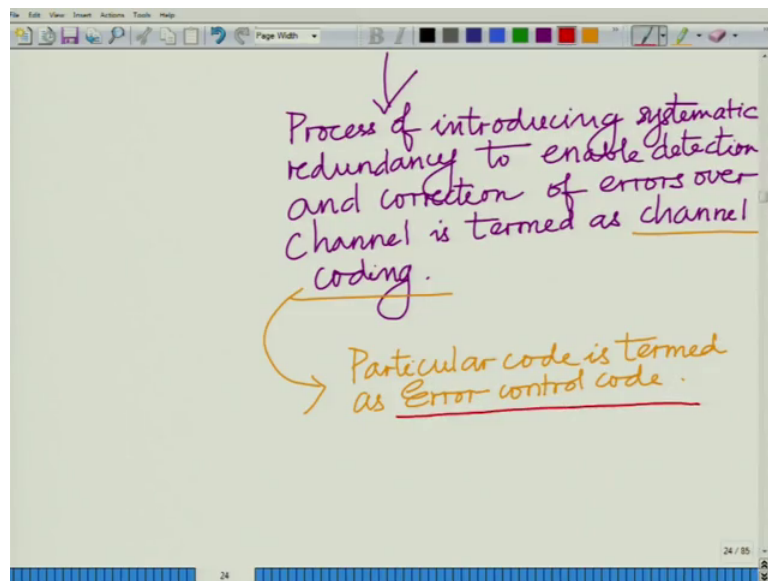 File Edit View Insert Actions Tools Help
Page Width
B I
Process of introducing systematic
redundancy to enable detection
and correction of errors over
Channel is termed as channel
coding.
Particular code is termed
as Error control code.
24 / 85
24